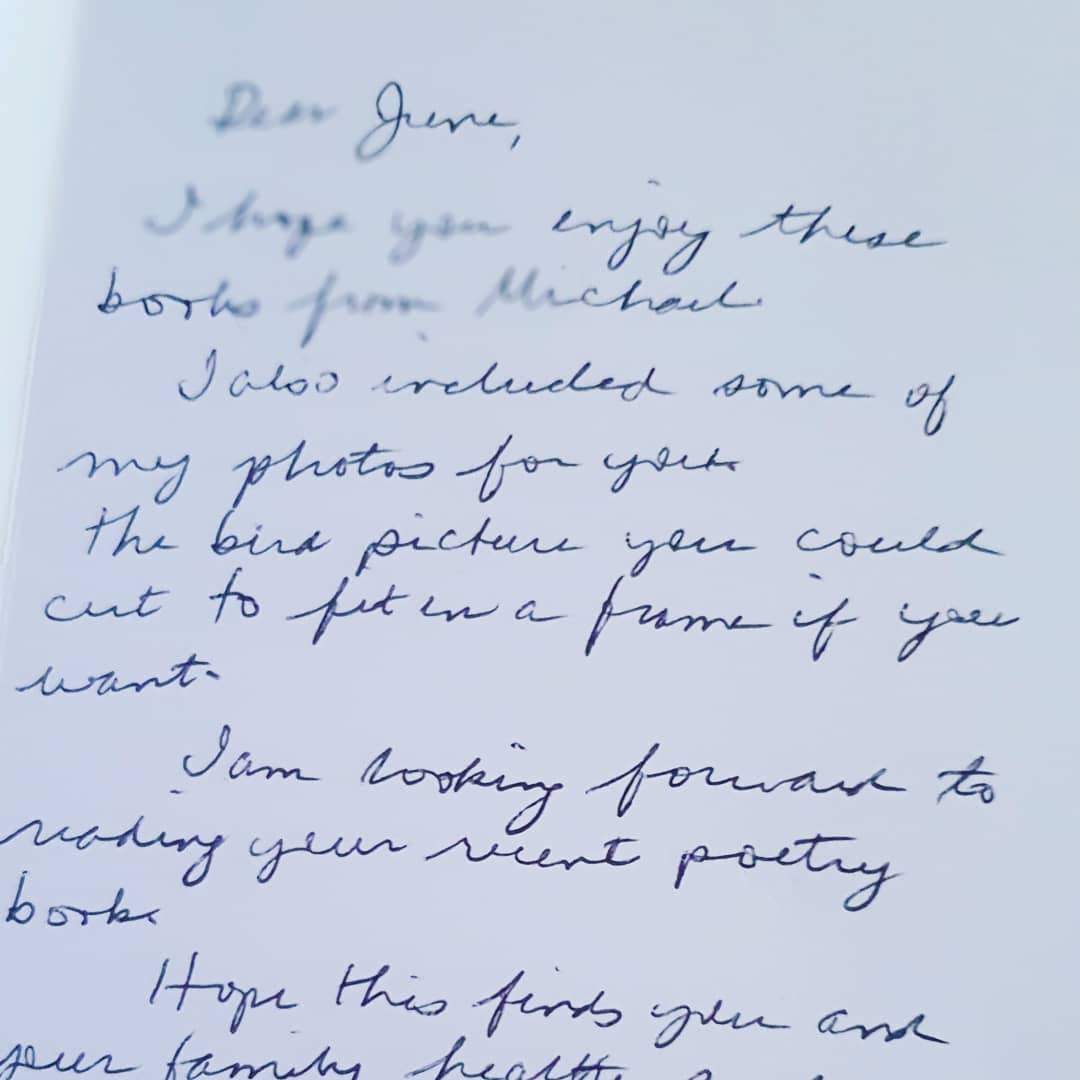 Dear June,
I hope you enjoy these
books from Michael.
I also included some of
my photos for you.
the bird picture you could
cut to fit in a frame if you
want.
I am looking forward to
reading your recent poetry
book.
Hope this finds you and
your family